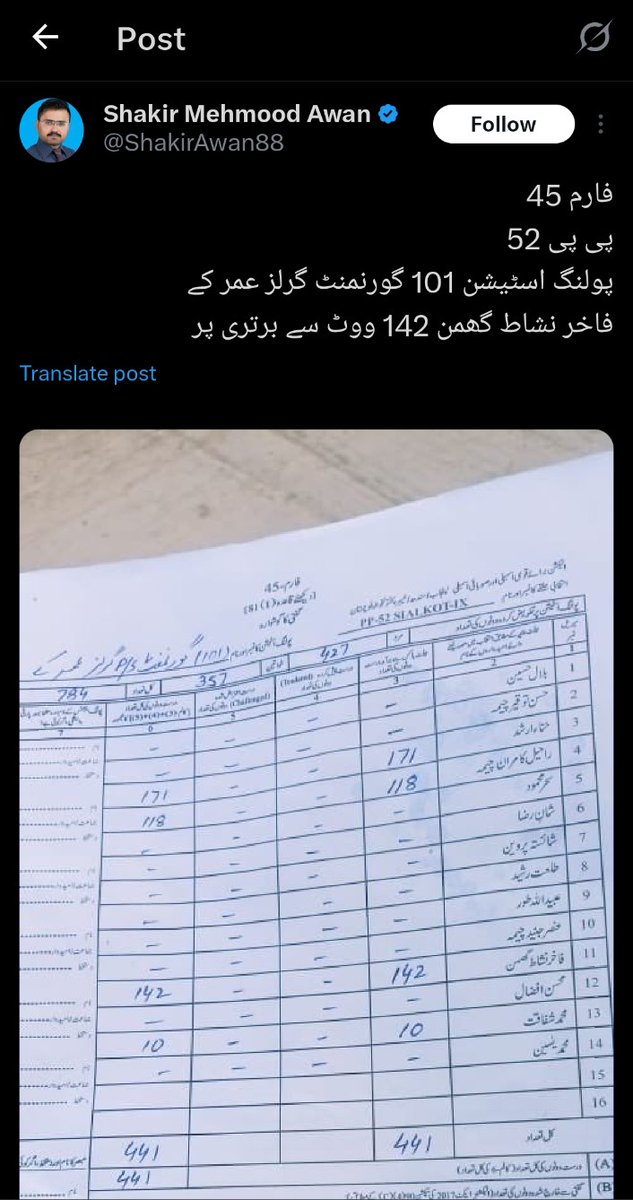 Post
Shakir Mehmood Awan
@ShakirAwan88
Follow
فارم 45
پی پی 52
پولنگ اسٹیشن 101 گورنمنٹ گرلز عمر کے
فاخر نشاط گھمن 142 ووٹ سے برتری پر
Translate post
فارم-45
PP-52 SIALKOT-IX
(101) گورنمنٹ گرلز P/S عمر کے
427 مرد 357 خواتین 784 کل تعداد
1 2 3 4 5 6 7
1 بلال حسین – – – –
2 حسن توقیر چیمہ – – – –
3 حناء ارشد 171 – – 171
4 راحیل کامران چیمہ 118 – – 118
5 سحر محمود – – – –
6 شان رضا – – – –
7 شائستہ پروین – – – –
8 طلعت رشید – – – –
9 عبید اللہ طور – – – –
10 عنصر جنید چیمہ – – – –
11 فاخر نشاط گھمن 142 – – 142
12 محسن افضال – – – –
13 محمد شفاقت 10 – – 10
14 محمد یٰسین – – – –
15
16
کل تعداد 441 441
(A) 441
(B)